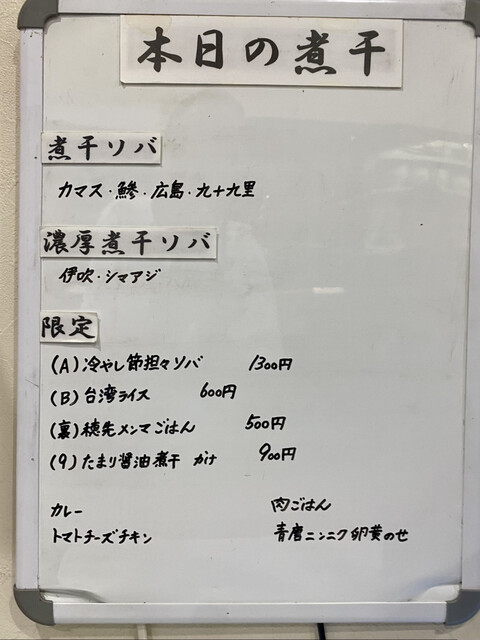 本日の煮干
煮干ソバ
カマス・鯵・広島・九十九里
濃厚煮干ソバ
伊吹・シマアジ
限定
(A)冷やし節担々ソバ 1300円
(B)台湾ライス 600円
(裏)穂先メンマごはん 500円
(9)たまり醤油煮干 かけ 900円
カレー 肉ごはん
トマトチーズチキン 青唐ニンニク卵黄のせ